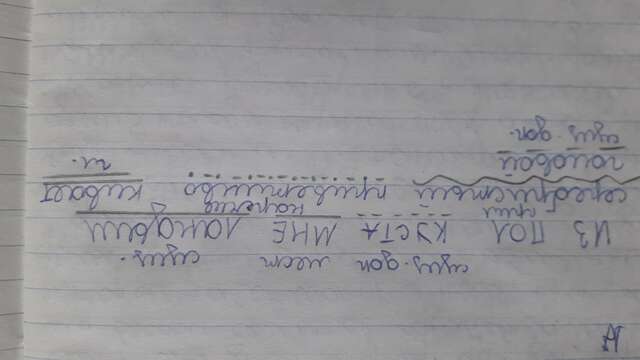 сущ. доп мест сущ.
ИЗ ПОД КУСТА МНЕ ЛАНДЫШ
прил наречие
серебристый приветливо кивает
гл.
головой
сущ. доп.